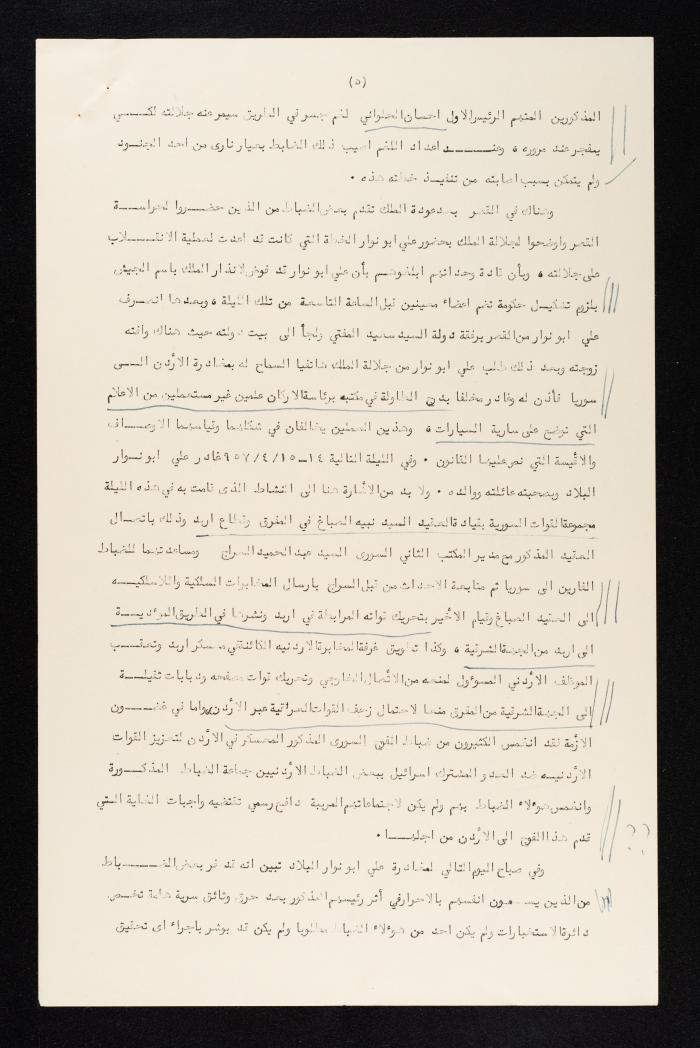 (٥)
المذكورين المتهم الرئيس الاول احسان الحلواني لغم جسر في الطريق سيمر عنه جلالته لكـــي
ينفجر عند مروره ، وعنـــد اعداد اللغم اصيب ذلك الضابط بعيار ناري من احد الجنـود
ولم يتمكن بسبب اصابته من تنفيـذ خطته هذه ٠
وهناك في القصر بعد عودة الملك تقدم بعض الضباط من الذين حضـروا لحراسـة
القصر واوضحوا لجلالة الملك بحضور علي ابو نوار الخطة التي كانت قد اعدت لعملية الانقـلاب
على جلالته ، وبأن قادة وحداتهم ابلغوهـم بأن علي ابو نوار قد فوض لانذار الملك باسم الجيش
بلزوم تشكيـل حكومة تضم اعضاء معينين قبل الساعة التاسعة من تلك الليلة ، وبعدها انصـرف
علي ابو نوار من القصر برفقة دولة السيد سعيد المفتي ولجأ الى بيت دولته حيث هناك وافته
زوجته وبعد ذلك طلب علي ابو نوار من جلالة الملك هاتفيا السماح له بمغادرة الأردن الـى
سوريا فأذن له وغادر مخلفا بدرج الطاولة في مكتبه برئاسة الاركان علمين غير مستعملين من الاعلام
التي توضع على سارية السيارات ، وهذين العلمين يخالفان في شكلهما وقياسهما الاوصـاف
والاقيسة التي نص عليها القانون ٠ وفي الليلة التالية ١٤ـ١٥/٤/٩٥٧ غادر علي ابو نـوار
البلاد وبصحبته عائلته ووالده ٠ ولا بد من الأشارة هنا الى النشاط الذى قامت به في هذه الليلة
مجموعة القوات السورية بقيادة العقيد السيد نبيه الصباغ في المفرق وقطاع اربد وذلك باتصـال
العقيد المذكور مع مدير المكتب الثاني السورى السيد عبد الحميد السراج ومساعدتهما للضباط
الفارين الى سوريا ثم متابعة الاحداث من قبل السراج بارسال المخابرات السلكية واللاسلكيـه
الى العقيد الصباغ وقيام الأخير بتحريك قواته المرابطة في اربد ونشرها في الطريق المؤديـة
الى اربد من الجهة الشرقية ، وكذا تطويق غرفة المخابرة الاردنيه الكائنة في معسكر اربد وتعقـب
الموظف الأردني المسؤول لمنعه من الأتصال الخارجي وتحريك قوات مصفحه ودبابات ثقيلـة
الى الجهة الشرقية من المفرق منعا لاحتمال زحف القوات العراقية عبر الأردن، واما في غضـون
الأزمة فقد انغمس الكثيرون من ضباط الفوج السورى المذكور المعسكر في الأردن لتعزيز القوات
الأردنيـه ضد العدو المشترك اسرائيل ببعض الضباط الأردنيين جماعة الضباط المذكـورة
وانغمس هوءلاء الضباط بهم ولم يكن لاجتماعاتهم المريبة دافع رسمي تقتضيه واجبات الغاية التـي
قدم هذا الفوج الى الأردن من اجلهــا ٠
??
وفي صباح اليوم التالي لمغادرة علي ابو نوار البلاد تبين انه قد فر بعض الضـباط
من الذين يسـمون انفسهم بالاحرار في أثر رئيسهم المذكور بعد حرق وثائق سرية هامة تخـص
دائرة الاستخبارات ولم يكن احد من هوءلاء الضباط مطلوبا ولم يكن قد بوشر باجراء اى تحقيق